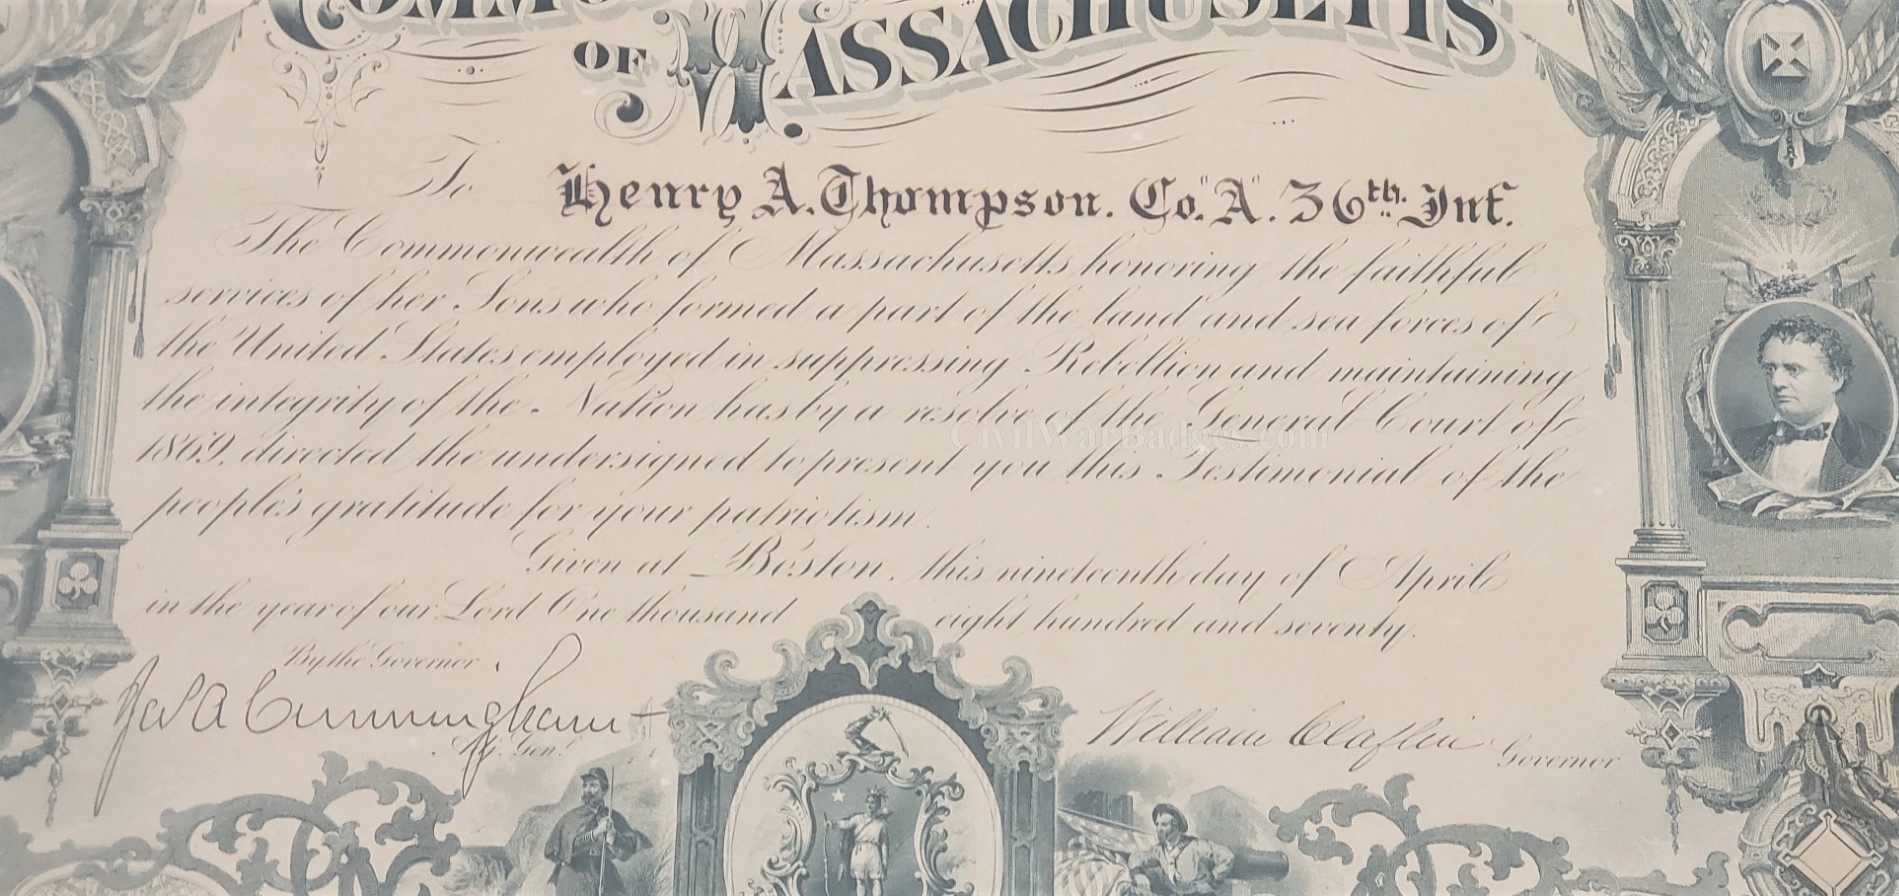 COMMO
OF MASSACHUSETTS
To Henry A. Thompson. Co. "A". 36th. Inf.
The Commonwealth of Massachusetts honoring the faithful
services of her Sons who formed a part of the land and sea forces of
the United States employed in suppressing Rebellion and maintaining
the integrity of the Nation has by a resolve of the General Court of
1869, directed the undersigned to present you this Testimonial of the
people's gratitude for your patriotism.
Given at Boston, this nineteenth day of April
in the year of our Lord One thousand eight hundred and seventy.
By the Governor.
Jas A Cunningham
Adj. Genl.
William Claflin Governor
CivilWarBadges.com